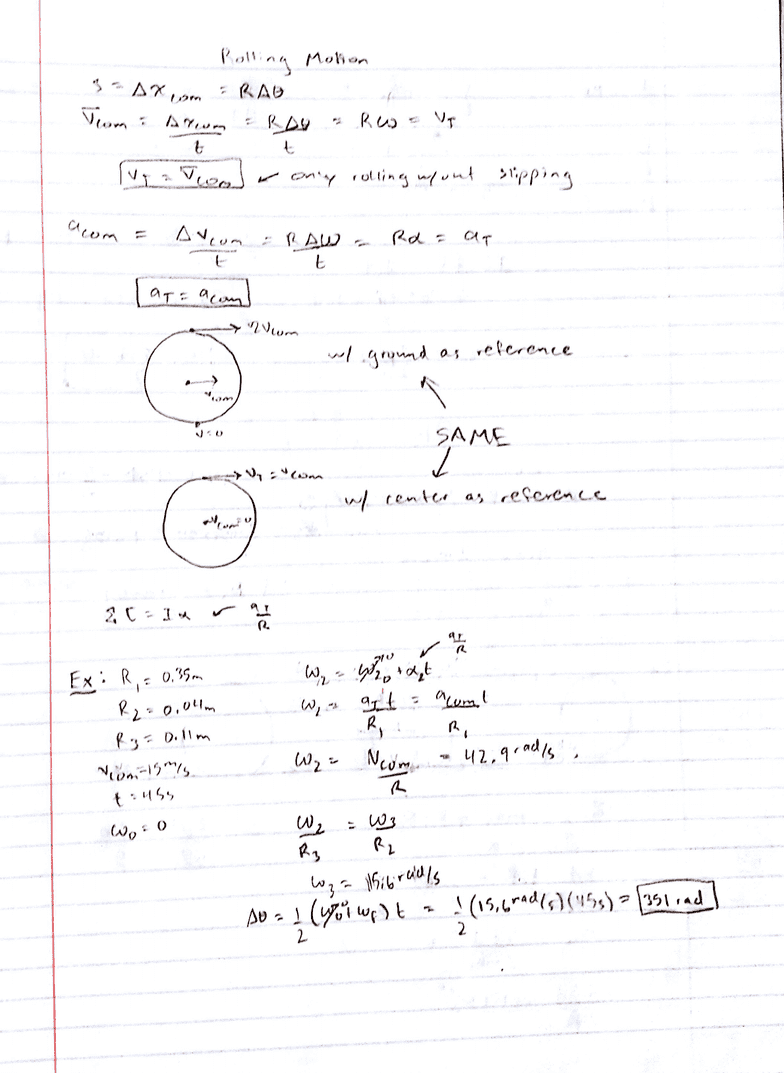 Rolling Motion
S = Δx com = RΔθ
v̄com = Δxcom/t = RΔθ/t = Rω = vT
vT = v̄com ← only rolling w/out slipping
acom = Δvcom/t = RΔω/t = Rα = aT
aT = acom
2vcom
w/ ground as reference
vcom
v=0
SAME
vT = vcom
w/ center as reference
vcom=0
Στ = Iα ← aT/R
Ex: R1 = 0.35m
R2 = 0.04m
R3 = 0.11m
vcom=15m/s
t = 45s
ω0 = 0
aT/R
ω2 = ω20 →0 + α2t
ω2 = aT t/R1 = acom t/R1
ω2 = vcom/R = 42.9 rad/s
ω2/R3 = ω3/R2
ω3 = 15.6 rad/s
Δθ = 1/2 (ω0 →0 + ωf) t = 1/2 (15.6 rad/s)(45s) = 351 rad